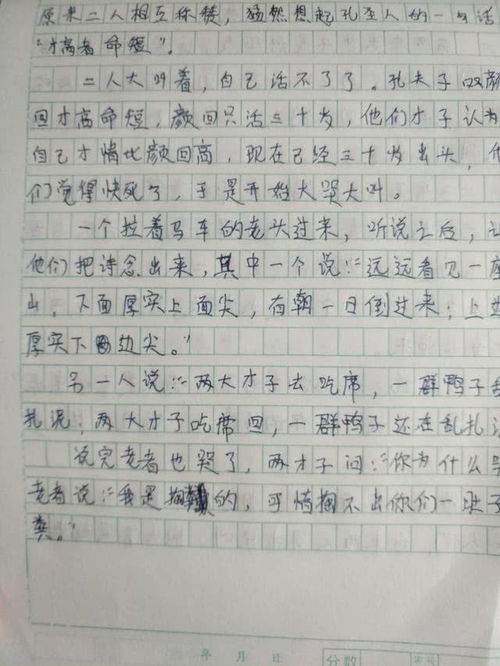 原来二人相互称赞，猛然想起孔圣人的一句话
“才高者命短”。
二人大叫着，自己活不了了。孔夫子叹颜
回才高命短，颜回只活三十岁，他们才子认为
自己才情比颜回高，现在已经三十岁出头，
们觉得快死了，于是开始大哭大叫。
一个拉着马车的老头过来，听说之后，
他们把诗念出来，其中一个说：“远远看见一座
山，下面厚实上面尖，有朝一日倒过来；上边
厚实下边尖。”
另一人说：“两大才子去吃席，一群鸭子乱
扎泥；两大才子吃席回，一群鸭子还在乱扎
说完老者也哭了，两才子问：“你为什么哭
老者说：“我是掏粪的，可惜掏不出你们一肚子
粪。”
年 月 日 分数